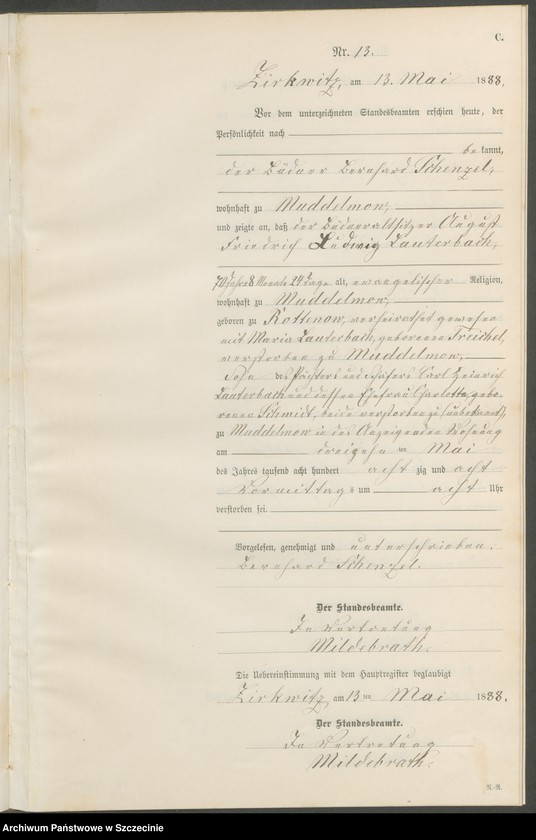 C.
Nr. 13.
Zirkwitz, am 13. Mai 1888.
Vor dem unterzeichneten Standesbeamten erschien heute, der
Persönlichkeit nach
bekannt,
der Büdner Bernhard Schenzel,
wohnhaft zu Muddelmow,
und zeigte an, daß der Büdneraltsitzer August
Friedrich Ludwig Lauterbach,
70 Jahre 8 Monate 24 Tage alt, evangelischer Religion,
wohnhaft zu Muddelmow,
geboren zu Rottenow, verheirathet gewesen
mit Maria Lauterbach, geborenen Treichel,
verstorben zu Muddelmow,
Sohn des Pächters und Schäfers Carl Heinrich
Lauterbach und dessen Ehefrau Charlotte, gebo-
renen Schmidt, beide verstorben zu (unbekannt),
zu Muddelmow in des Anzeigenden Wohnung
am dreizehn ten Mai
des Jahres tausend acht hundert acht zig und acht
Vormittags um acht Uhr
verstorben sei.
Vorgelesen, genehmigt und unterschrieben.
Bernhard Schenzel.
Der Standesbeamte.
In Vertretung
Mildebrath.
Die Uebereinstimmung mit dem Hauptregister beglaubigt
Zirkwitz, am 13 ten Mai 1888.
Der Standesbeamte.
In Vertretung
Mildebrath.
Archiwum Państwowe w Szczecinie